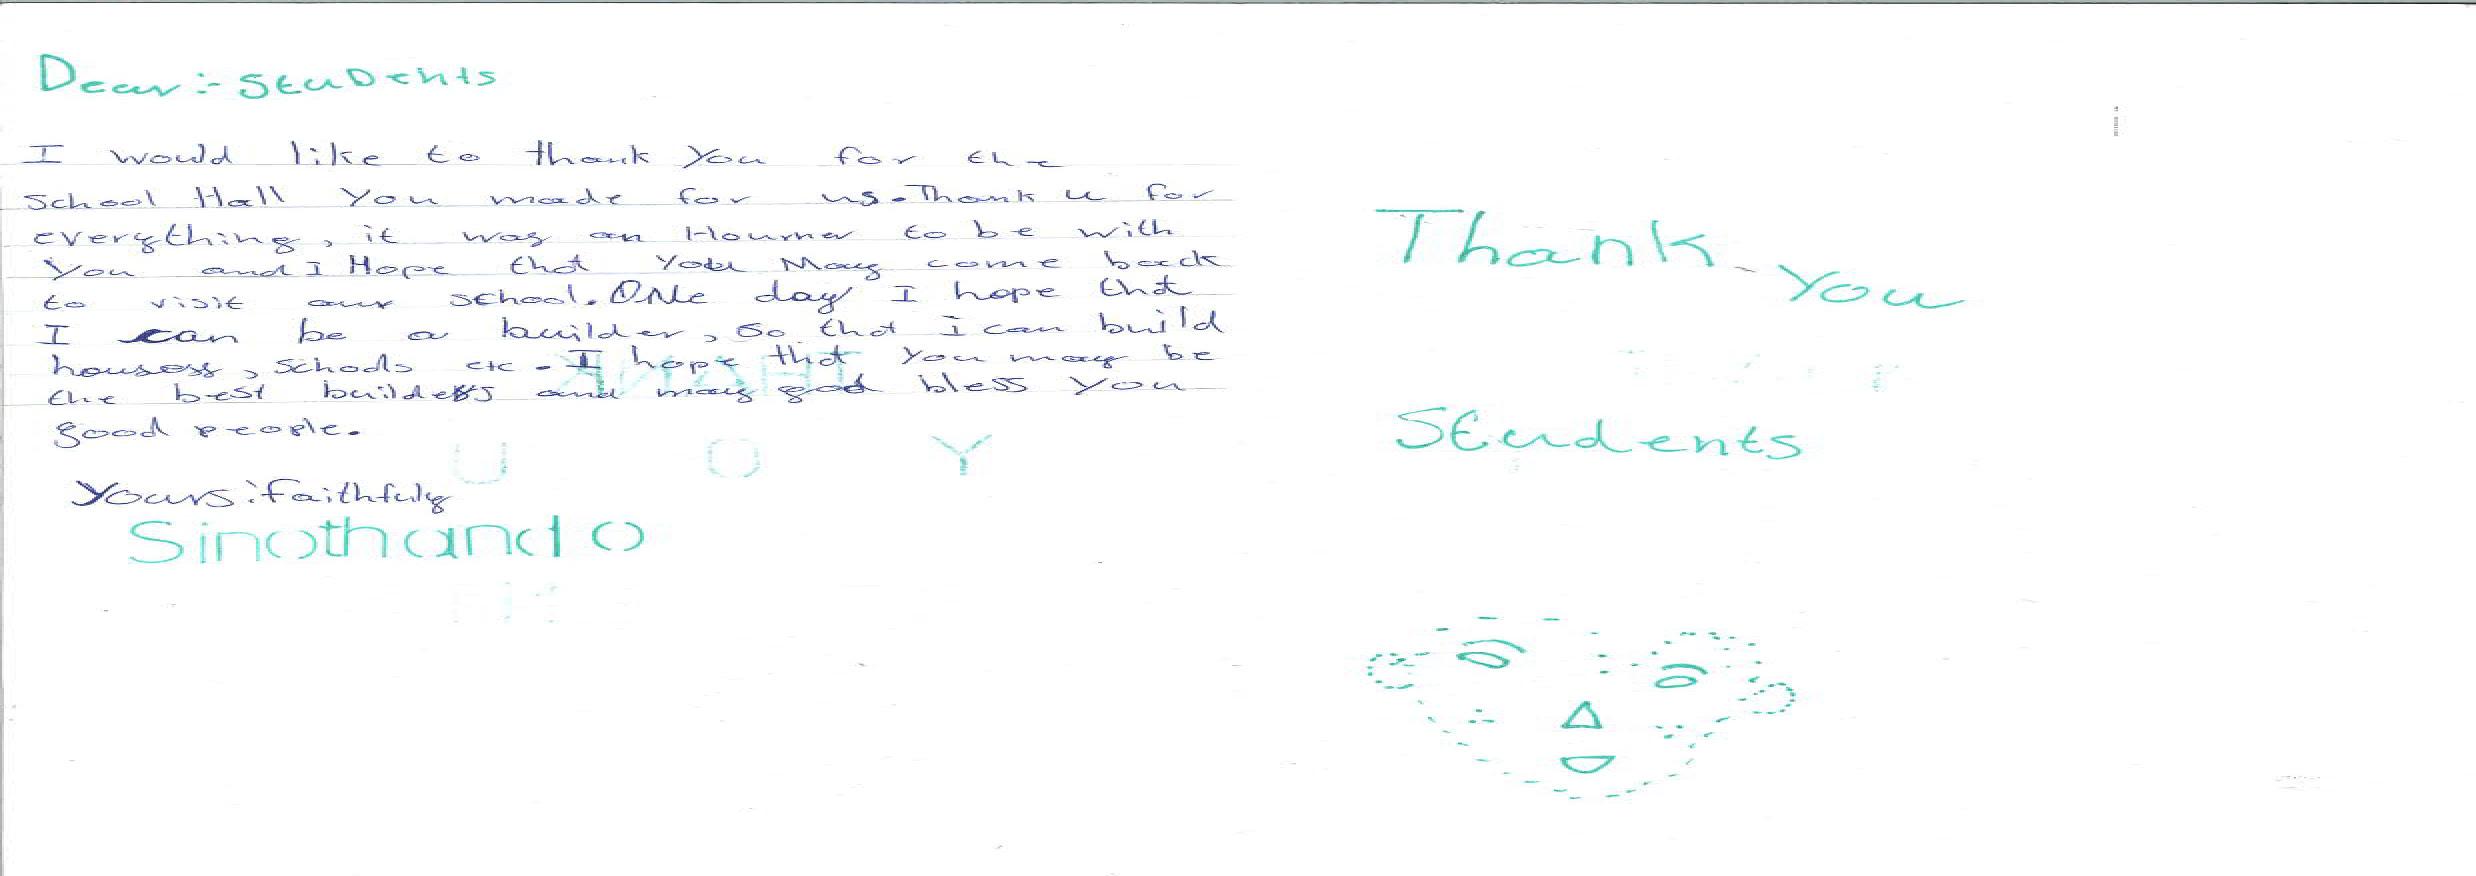 Dear :- Students
I would like to thank you for the
School Hall you made for us. Thank u for
everything, it was an Hounner to be with
you and I Hope that you May come back
to visit our school. ONe day I hope that
I can be a builder, so that i can build
housess, schools etc - I hope that you may be
the best builders and may god bless you
good people.
Yours: faithfuly
Sinothando
Thank you
Students
THANK
YOU